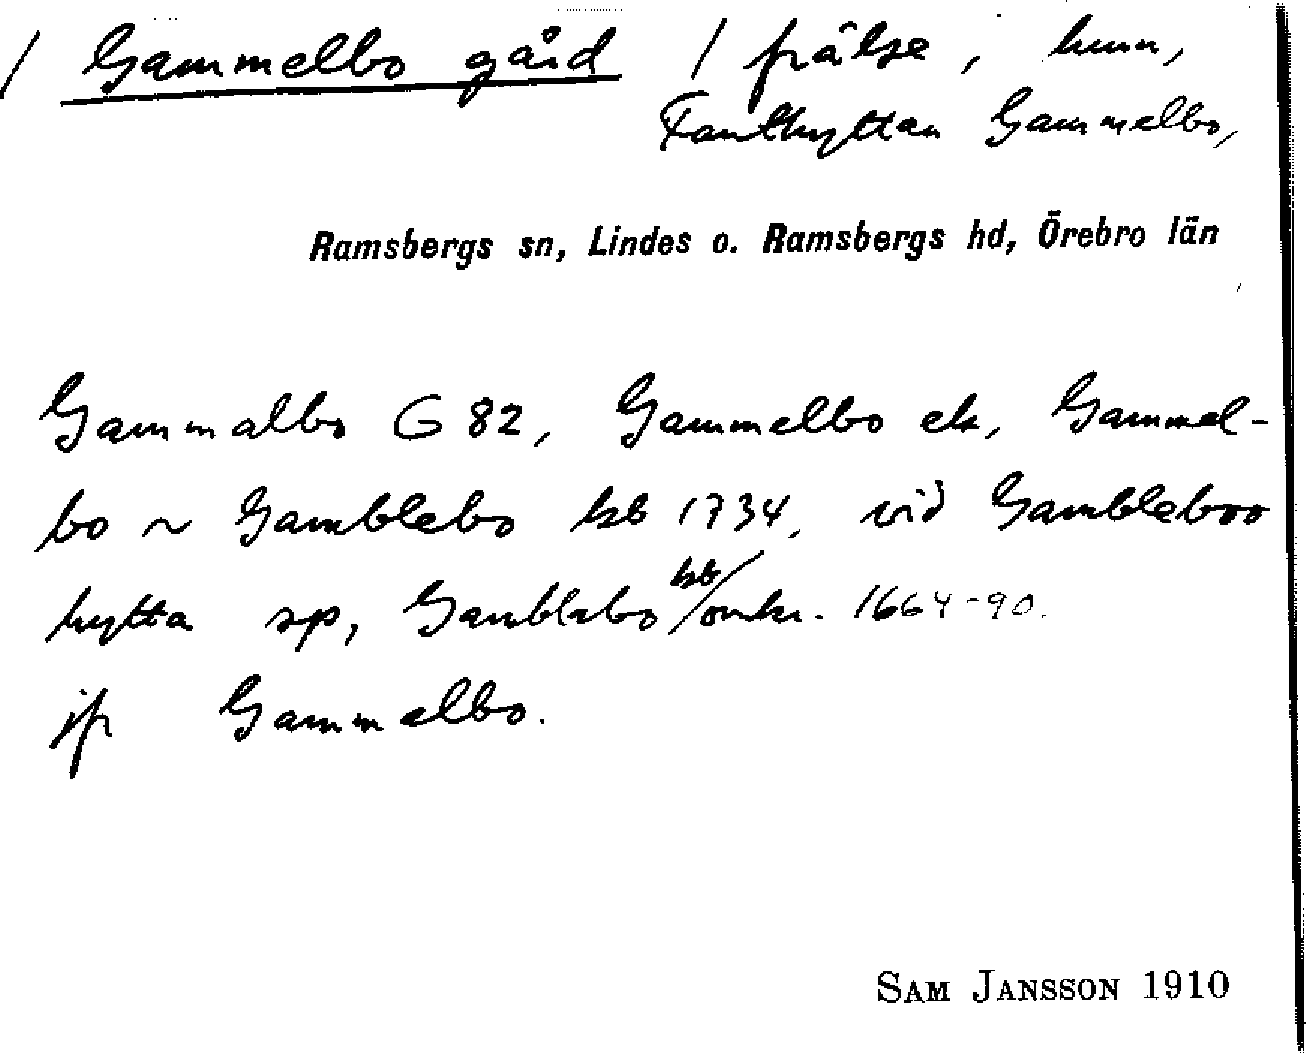 / Gammelbo gård / frälse, hmn,
Fanthyttan Gammelbo,
Ramsbergs sn, Lindes o. Ramsbergs hd, Örebro län
Gammalbo G 82, Gammelbo ek, Gammel-
bo ~ Gamblebo kb 1734, vid Gambleboo
hytta sp, Gamblebo kb/omkr. 1664-90.
jfr Gammelbo.
SAM JANSSON 1910